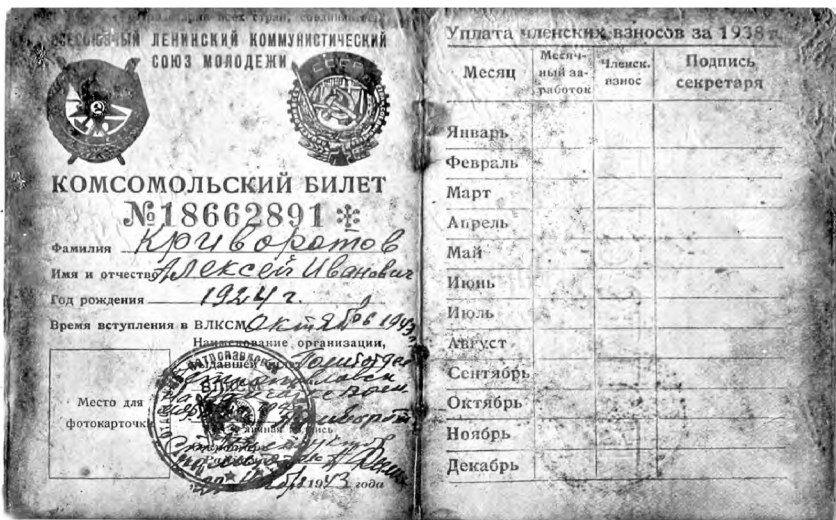 всех стран,
ВСЕСОЮЗНЫЙ ЛЕНИНСКИЙ КОММУНИСТИЧЕСКИЙ
СОЮЗ МОЛОДЕЖИ
КОМСОМОЛЬСКИЙ БИЛЕТ
№18662891
Фамилия Криворотов
Имя и отчество Алексей Иванович
Год рождения 1924 г.
Время вступления в ВЛКСМ Октябрь 1943 г.
Наименование организации,
выдавшей билет Политотдел
Место для
фотокарточки
Личная подпись
1943 года
Уплата членских взносов за 1938 г.
Месяц
Месяч-
ный за-
работок
Членск.
взнос
Подпись
секретаря
Январь
Февраль
Март
Апрель
Май
Июнь
Июль
Август
Сентябрь
Октябрь
Ноябрь
Декабрь